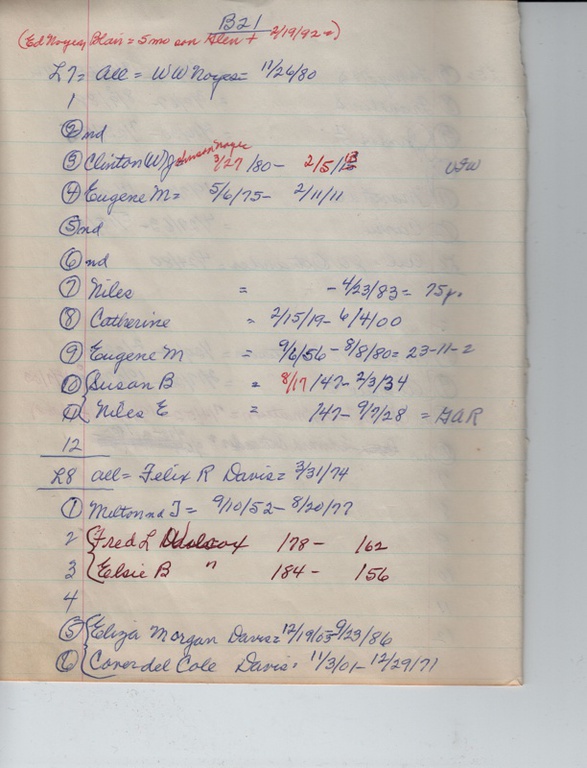 B21
(Ed Noyes, Blain = 5 mo son Alen + 2/19/92 =)
L7 = All = WW Noyes = 11/26/80
1
② nd
③ Clinton (W) Johnson Noyes 3/27/80 - 2/5/ VFW
④ Eugene M = 5/6/75 - 2/11/11
⑤ nd
⑥ nd
⑦ Niles = - 4/23/83 = 75 yr.
⑧ Catherine = 2/15/19 - 6/4/00
⑨ Eugene M = 9/6/56 - 8/8/80 = 23-11-2
⑩ Susan B = 8/17/47 - 2/3/34
⑪ Niles E = /47 - 9/7/28 = GAR
12
L8 all = Felix R Davis = 3/31/74
① Milton nd J = 9/10/52 - 8/20/77
2 Fred L Wilcox 178 - 162
3 Elsie B " 184 - 156
4
⑤ Eliza Morgan Davis = 12/19/03 - 9/23/86
⑥ Coverdel Cole Davis = 11/3/01 - 12/29/71